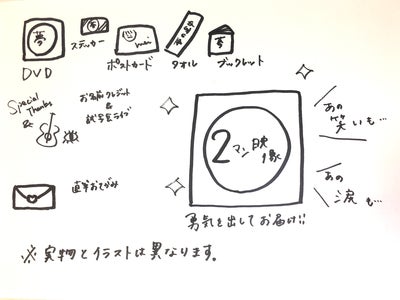 夢
DVD
ステッカー
ポストカード
タオル
ブックレット
Special
Thanks
&
お名前クレジット
&
試写会ライブ
直筆おてがみ
2マン映像
あの
笑いも…
あの
涙も…
勇気を出してお届け!!
※実物とイラストは異なります。